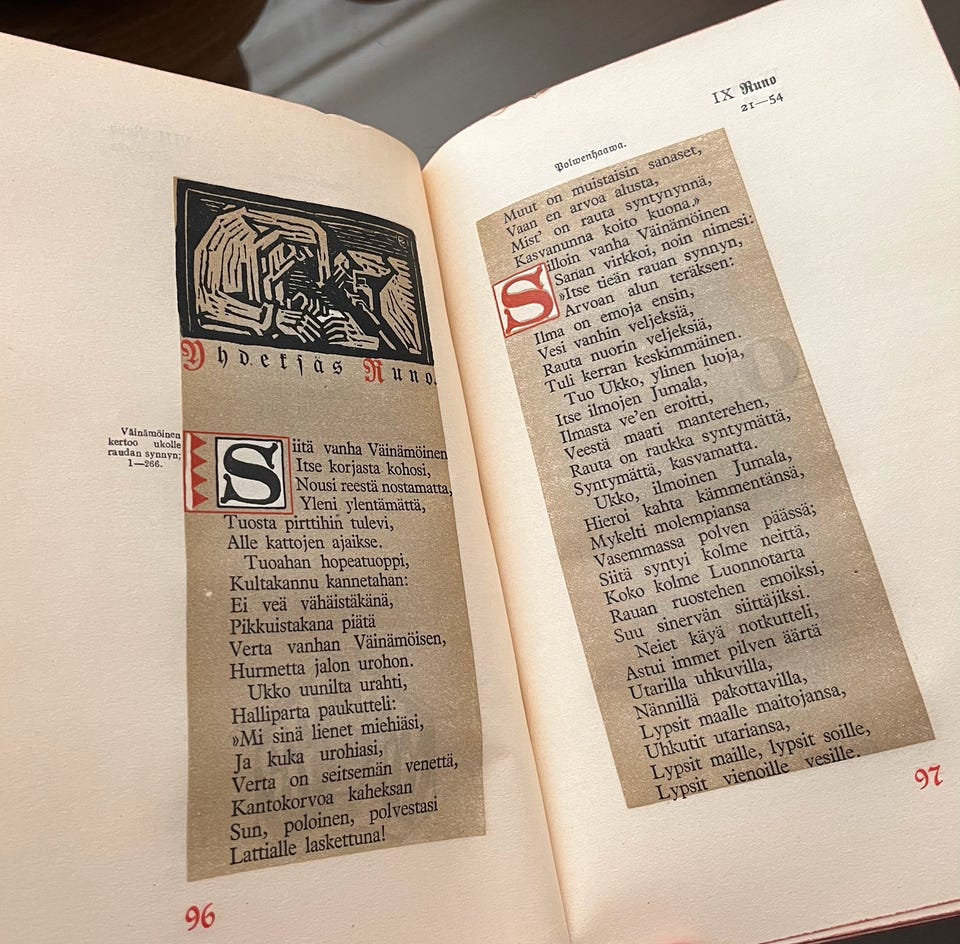 Yhdeksäs Runo.
Väinämöinen
kertoo ukolle
raudan synnyn;
1—266.
Siitä vanha Väinämöinen
Itse korjasta kohosi,
Nousi reestä nostamatta,
Yleni ylentämättä,
Tuosta pirttihin tulevi,
Alle kattojen ajaikse.
Tuoahan hopeatuoppi,
Kultakannu kannetahan:
Ei veä vähäistäkänä,
Pikkuistakana piätä
Verta vanhan Väinämöisen,
Hurmetta jalon urohon.
Ukko uunilta urahti,
Halliparta paukutteli:
»Mi sinä lienet miehiäsi,
Ja kuka urohiasi,
Verta on seitsemän venettä,
Kantokorvoa kaheksan
Sun, poloinen, polvestasi
Lattialle laskettuna!
96
IX Runo
21—54
Polwenhaawa.
Muut on muistaisin sanaset,
Vaan en arvoa alusta,
Mist' on rauta syntynynnä,
Kasvanunna koito kuona.»
Silloin vanha Väinämöinen
Sanan virkkoi, noin nimesi:
»Itse tieän rauan synnyn,
Arvoan alun teräksen:
Ilma on emoja ensin,
Vesi vanhin veljeksiä,
Rauta nuorin veljeksiä,
Tuli kerran keskimmäinen.
Tuo Ukko, ylinen luoja,
Itse ilmojen Jumala,
Ilmasta ve'en eroitti,
Veestä maati manterehen,
Rauta on raukka syntymättä,
Syntymättä, kasvamatta.
Ukko, ilmoinen Jumala,
Hieroi kahta kämmentänsä,
Mykelti molempiansa
Vasemmassa polven päässä;
Siitä syntyi kolme neittä,
Koko kolme Luonnotarta
Rauan ruostehen emoiksi,
Suu sinervän siittäjiksi.
Neiet käyä notkutteli,
Astui immet pilven äärtä
Utarilla uhkuvilla,
Nännillä pakottavilla,
Lypsit maalle maitojansa,
Uhkutit utariansa,
Lypsit maille, lypsit soille,
Lypsit vienoille vesille.
97